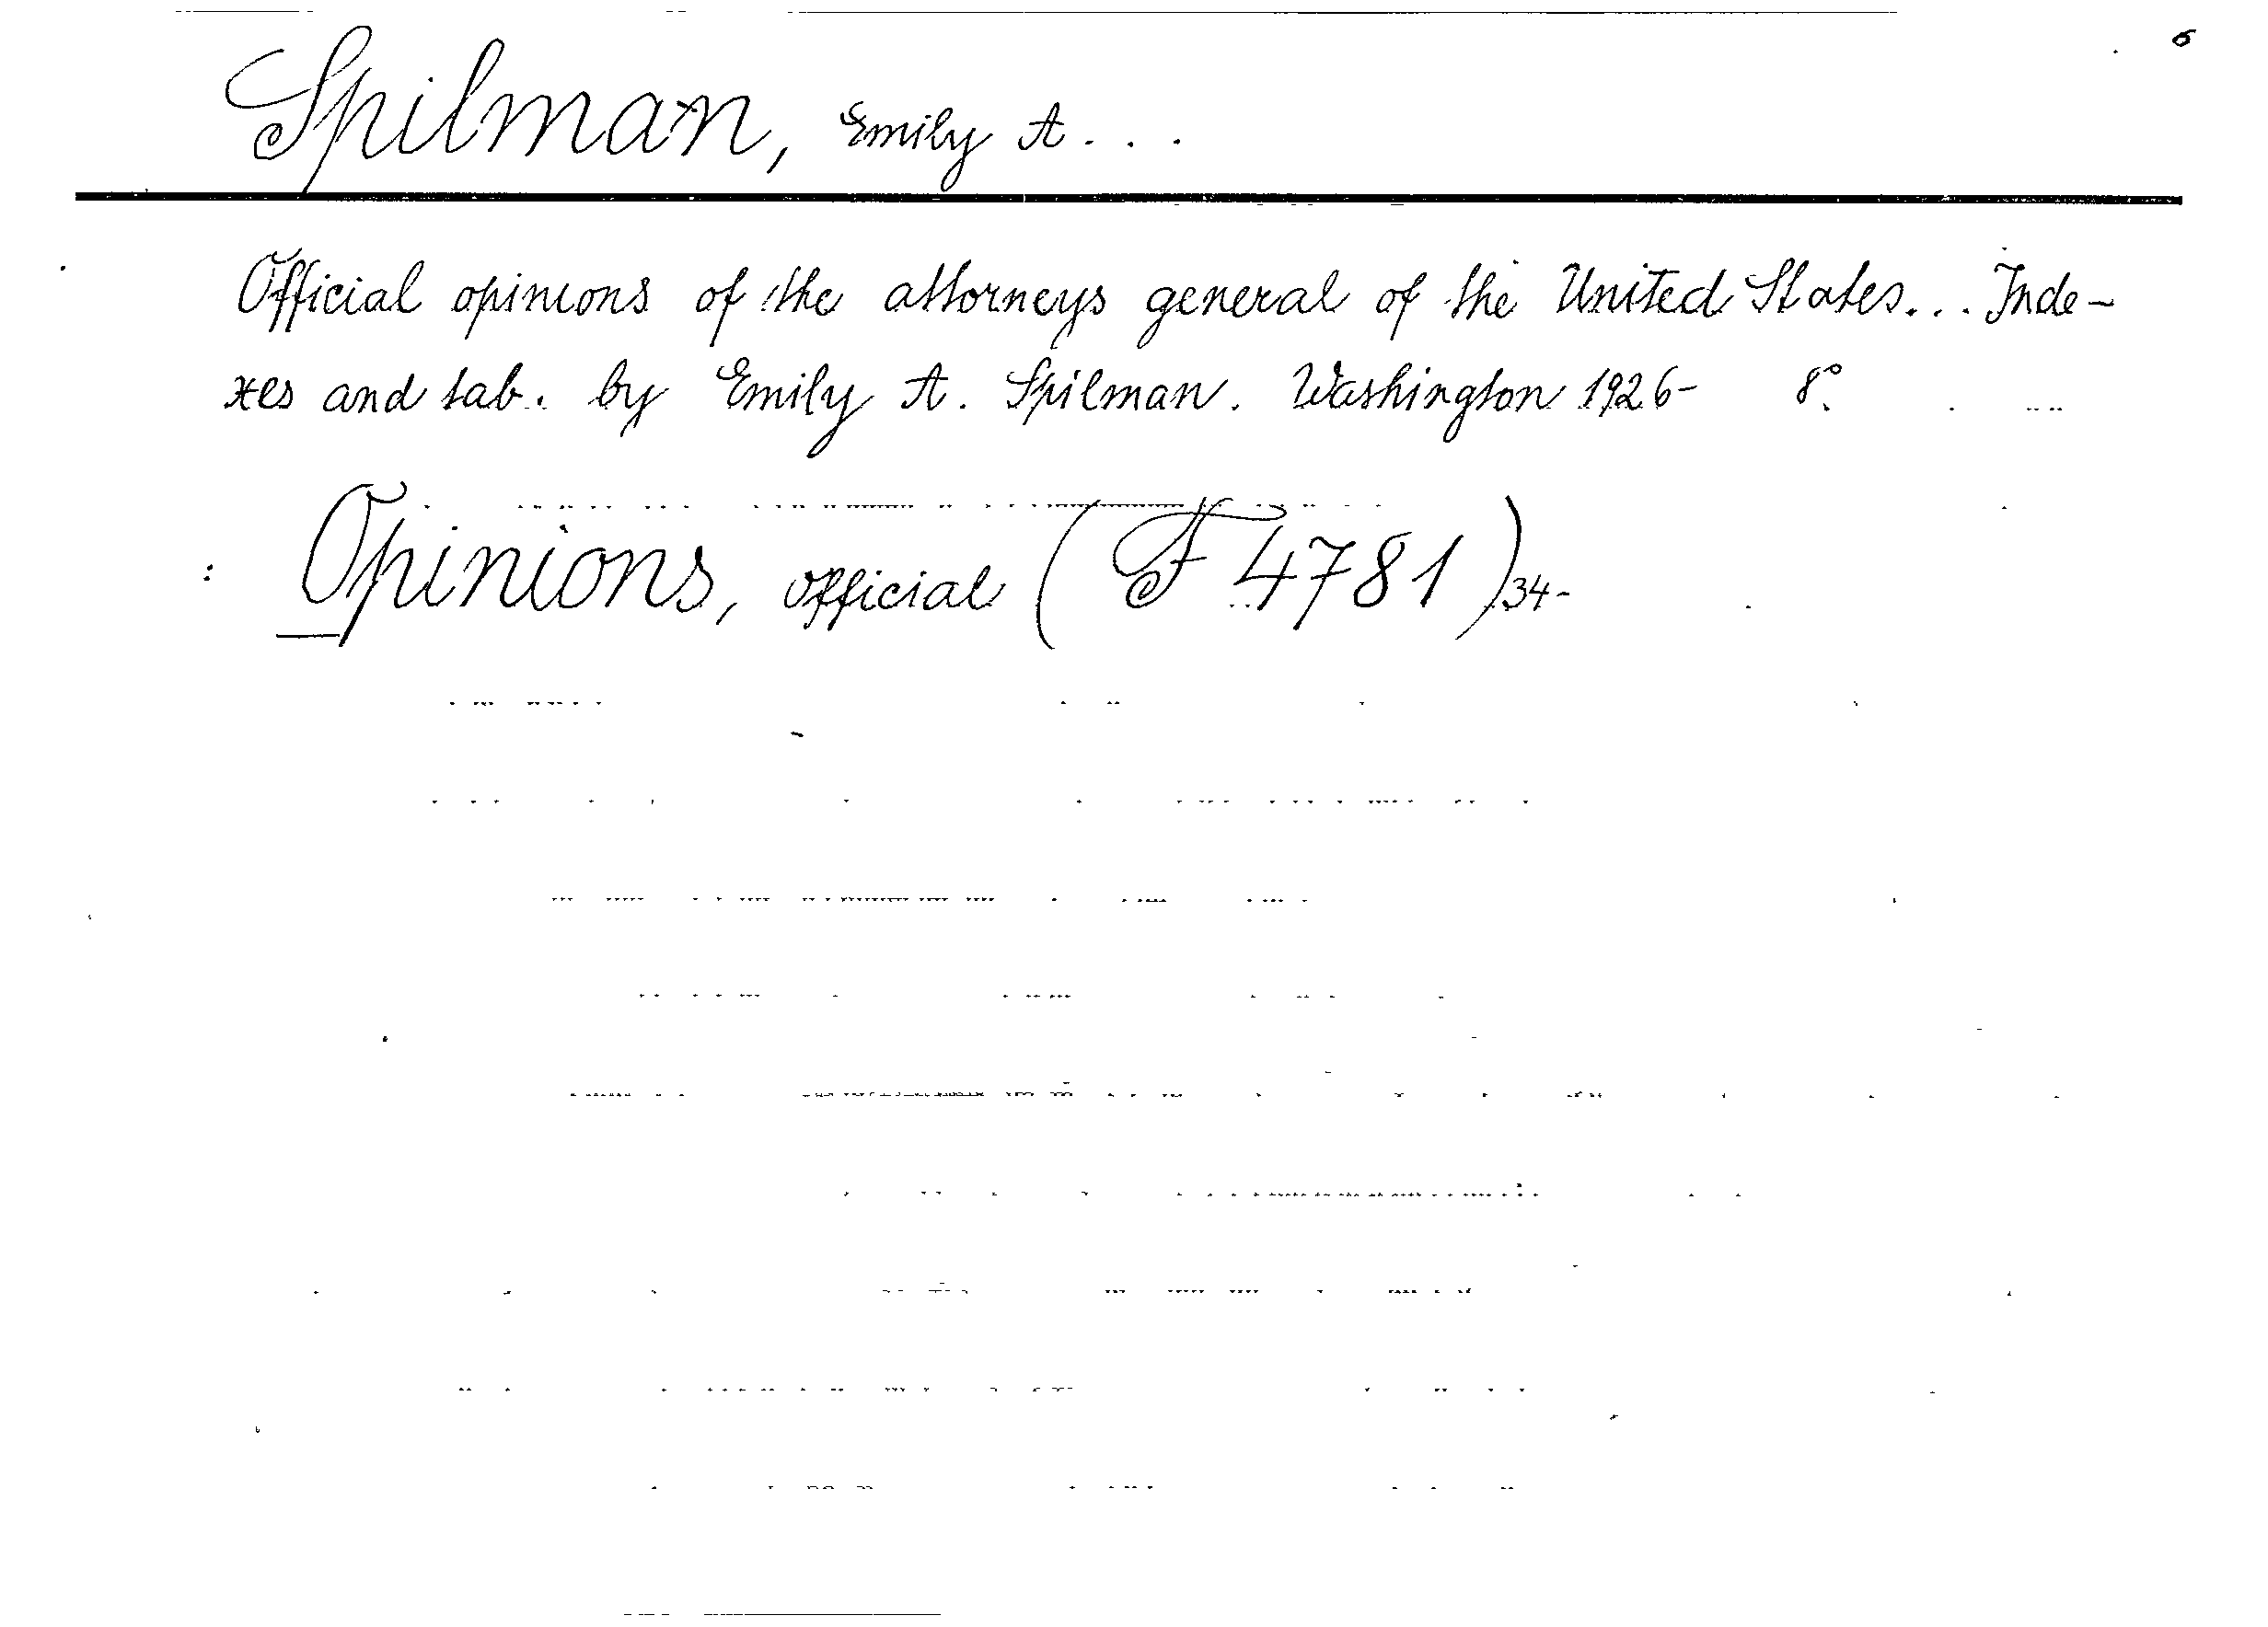 6
Spilman, Emily A...
Official opinions of the attorneys general of the United States... Inde-
xes and tab. by Emily A. Spilman. Washington 1926- 8°.
: Opinions, official (F 4781) 34-